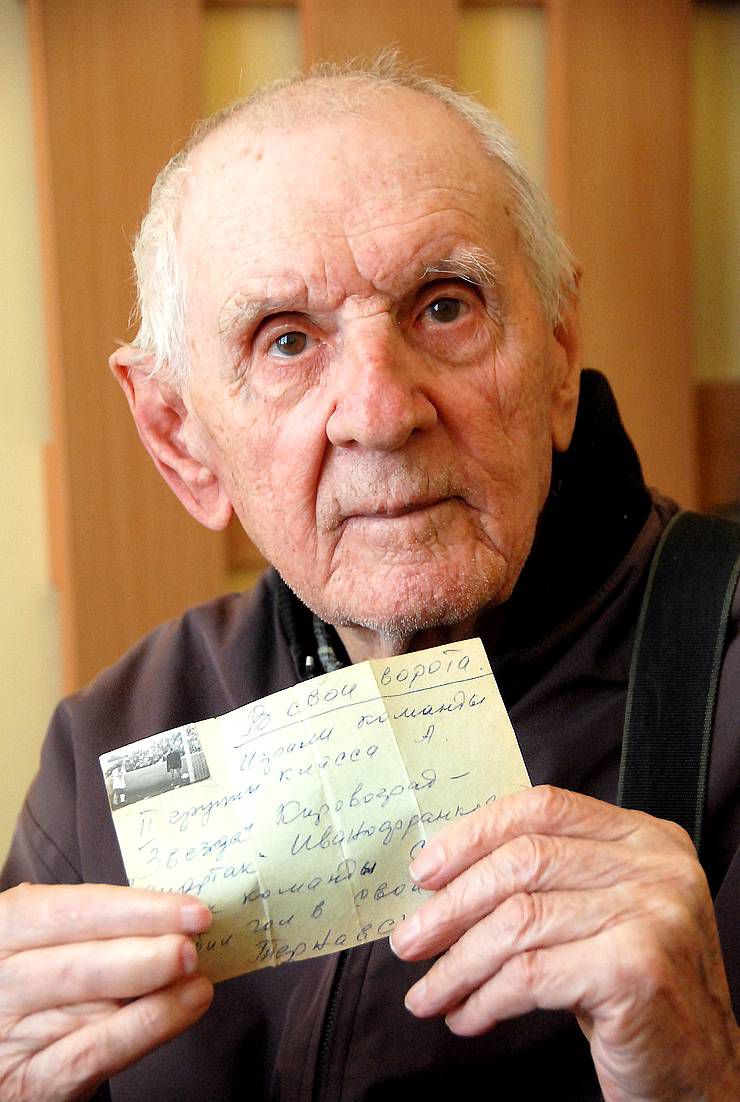 В свои ворота.
Играли команды
II группы класса А.
Звезда Кировоград -
Спартак. Иванофранков
команды
гол в свои
Тернавс